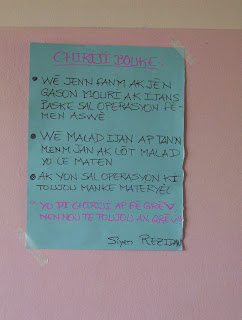 CHIRIJI BOUKE
• WÈ JENN FANM AK JÈN
GASON MOURI AK IJANS
PASKE SAL OPERASYON FÈ-
MEN ASWÈ
• WÈ MALAD IJAN AP TANN
MENM JAN AK LÒT MALAD
YO LE MATEN
• AK YON SAL OPERASYON KI
TOUJOU MANKE MATERYÈL
YO DI CHIRIJI AP FÈ GRÈV
MEN NOU TE TOUJOU AN GRÈV
Siyen REZIDAN